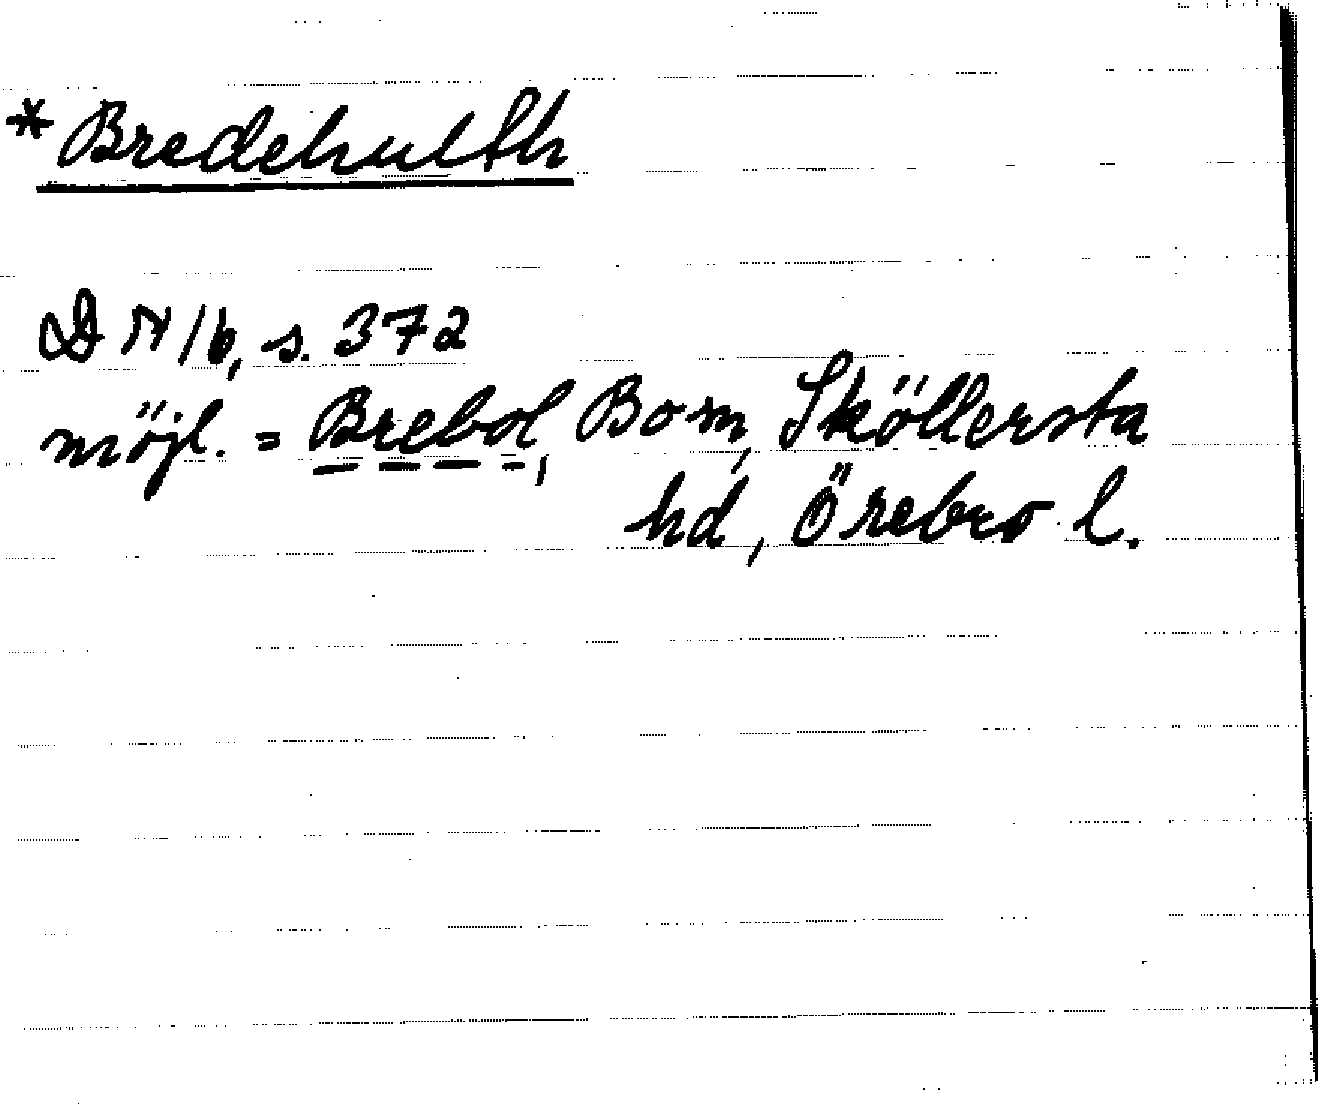 * Bredehulth
D N 16, s. 372
möjl. = Brebol, Bo sn, Sköllersta
hd, Örebro l.